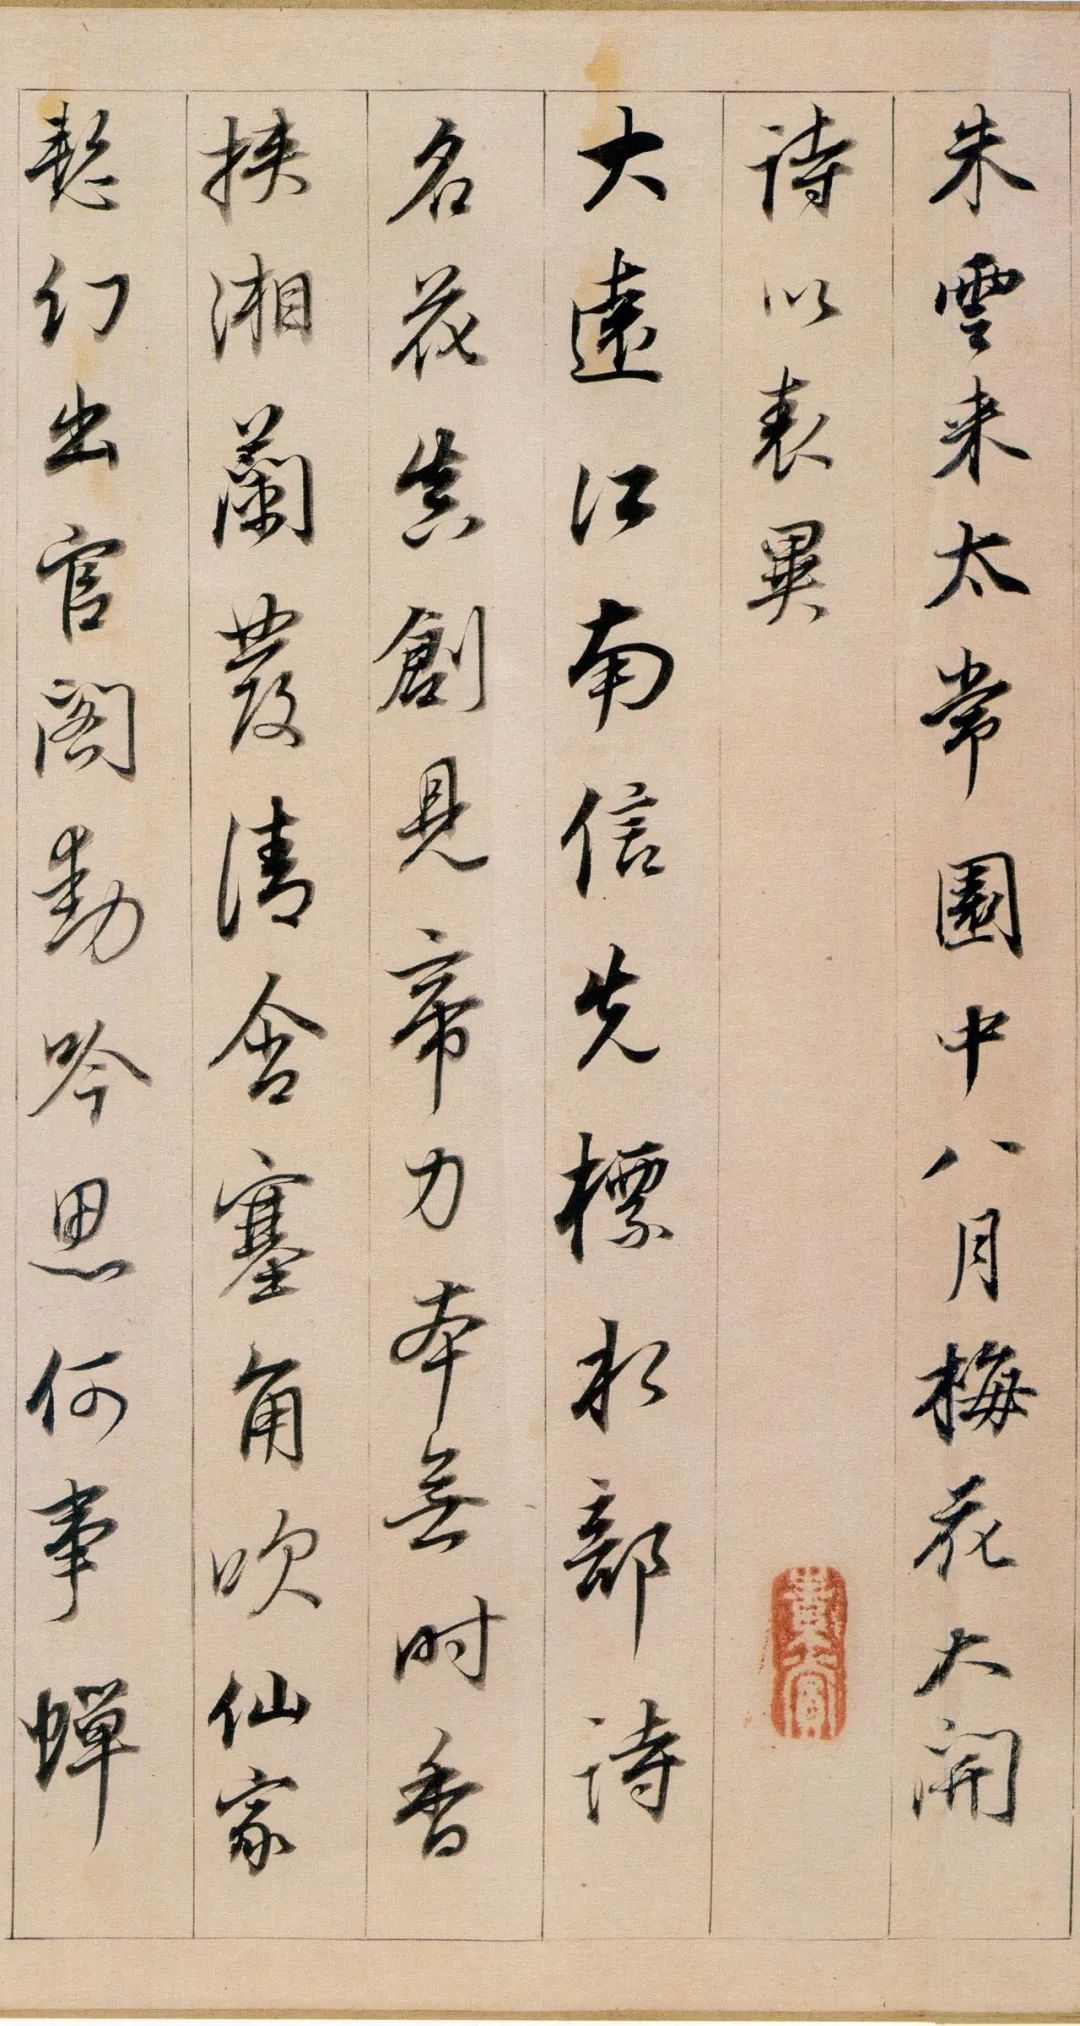 朱雲來太常園中八月梅花大開
詩以表異
大遠江南信先標水部詩
名花真創見帝力本無時香
挾湘蘭發清含塞角吹仙家
幻出官閣動吟思何事蟬